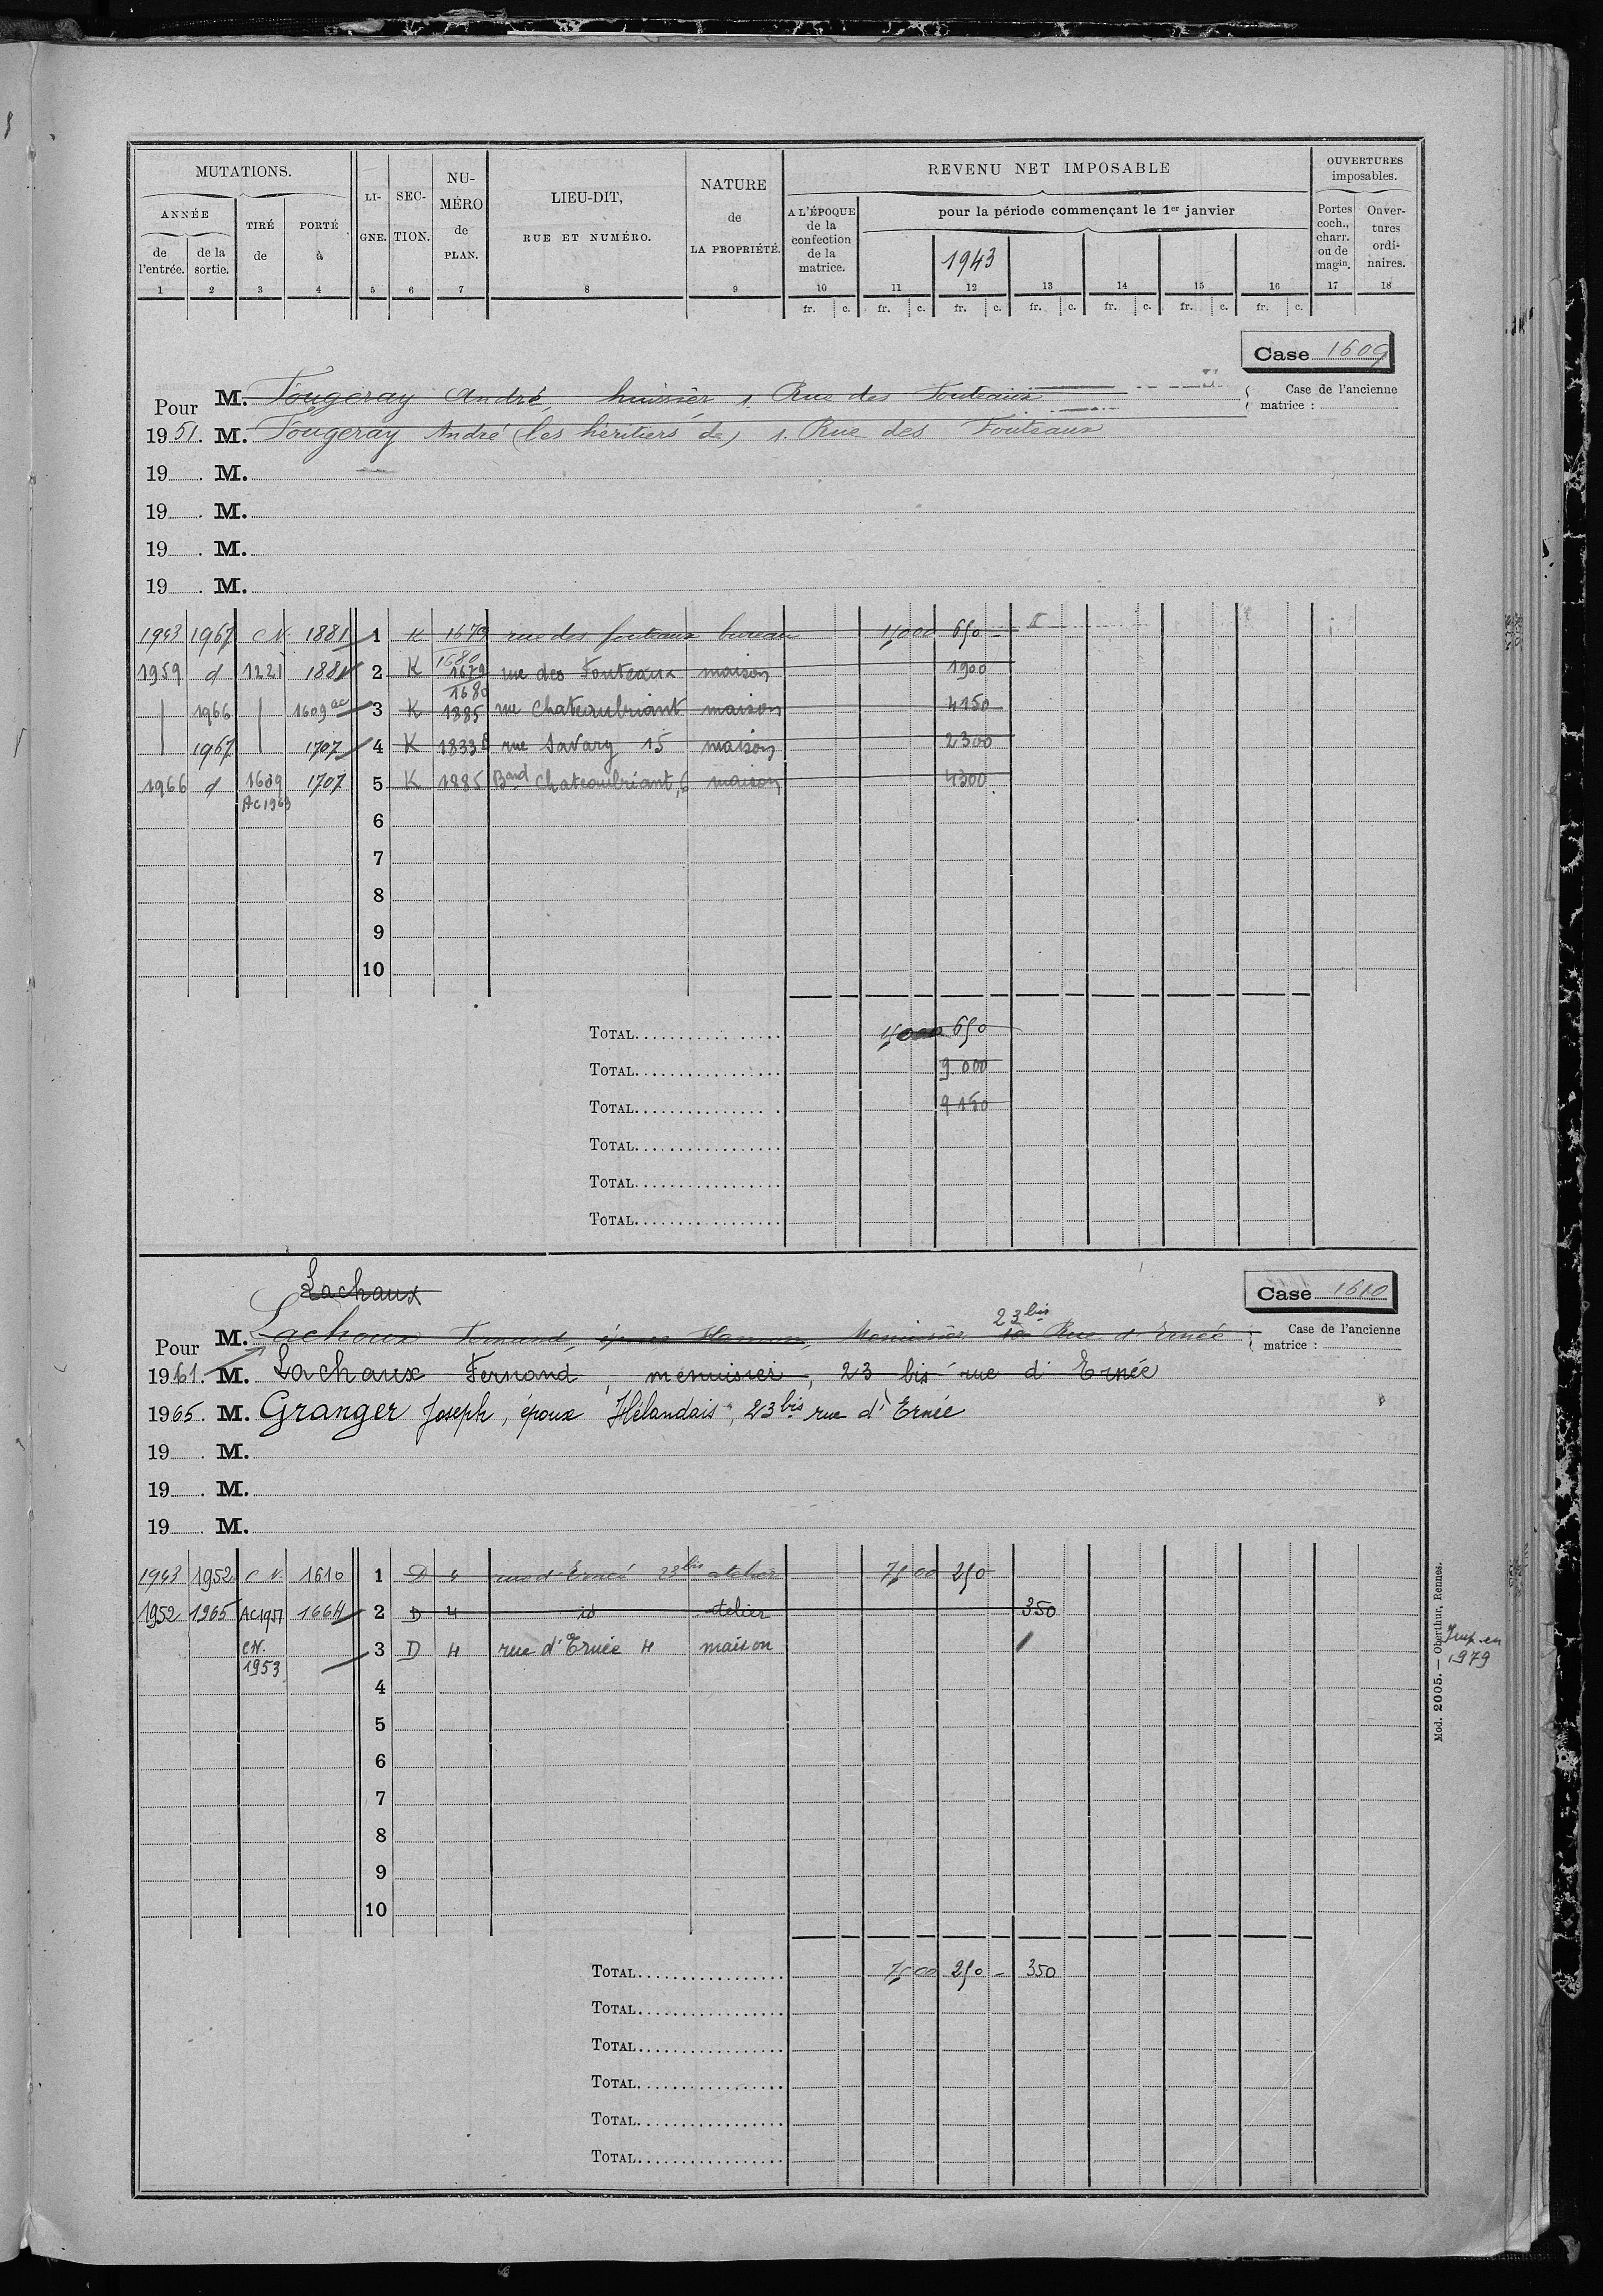 MUTATIONS.
ANNÉE
de l'entrée.
de la sortie.
TIRÉ de
PORTÉ à
LI-GNE.
SEC-TION.
NU-MÉRO de PLAN.
LIEU-DIT, RUE ET NUMÉRO.
NATURE de LA PROPRIÉTÉ.
REVENU NET IMPOSABLE
A L'ÉPOQUE de la confection de la matrice.
pour la période commençant le 1er janvier
1943
OUVERTURES imposables.
Portes coch., charr. ou de magin.
Ouver-tures ordi-naires.
1 2 3 4 5 6 7 8 9 10 11 12 13 14 15 16 17 18
fr. c. fr. c. fr. c. fr. c. fr. c. fr. c. fr. c.
Case 1609
Pour M. Fougeray André, huissier 1 Rue des Fouteaux
Case de l'ancienne matrice :
1951. M. Fougeray André (les héritiers de) 1. Rue des Fouteaux
19 . M.
19 . M.
19 . M.
19 . M.
1943 1967 CN 1881 1 K 1679 rue des fouteaux bureau 650
1680
1959 d 1221 1881 2 K 1679 rue des Fouteaux maison 1900
1680
1966 1609 ac 3 K 1885 rue Chateaubriant maison 4150
1967 1707 4 K 1833 rue Savary 15 maison 2300
1966 d 1609 1707 5 K 1885 Bard Chateaubriant, 6 maison 4300
AC1969
6
7
8
9
10
TOTAL 650
TOTAL 9.000
TOTAL 9150
TOTAL
TOTAL
TOTAL
Lachaux
Case 1610
23 bis
Pour M. Lachaux Fernand, époux Hamon, Menuisier Rue d'Ernée
Case de l'ancienne matrice :
1961. M. Lachaux Fernand, menuisier, 23 bis rue d'Ernée
1965. M. Granger Joseph, époux Hélandais, 23 bis rue d'Ernée
19 . M.
19 . M.
19 . M.
1943 1952 C N. 1610 1 D 4 rue d'Ernée 23 bis atelier 7500 250
1952 1965 AC1951 1664 2 D 4 id atelier 350
CN. 1953 3 D 4 rue d'Ernée 4 maison
4
5
6
7
8
9
10
TOTAL 7500 250 350
TOTAL
TOTAL
TOTAL
TOTAL
TOTAL
Mod. 2005. — Oberthur, Rennes.
Imp. en 1979